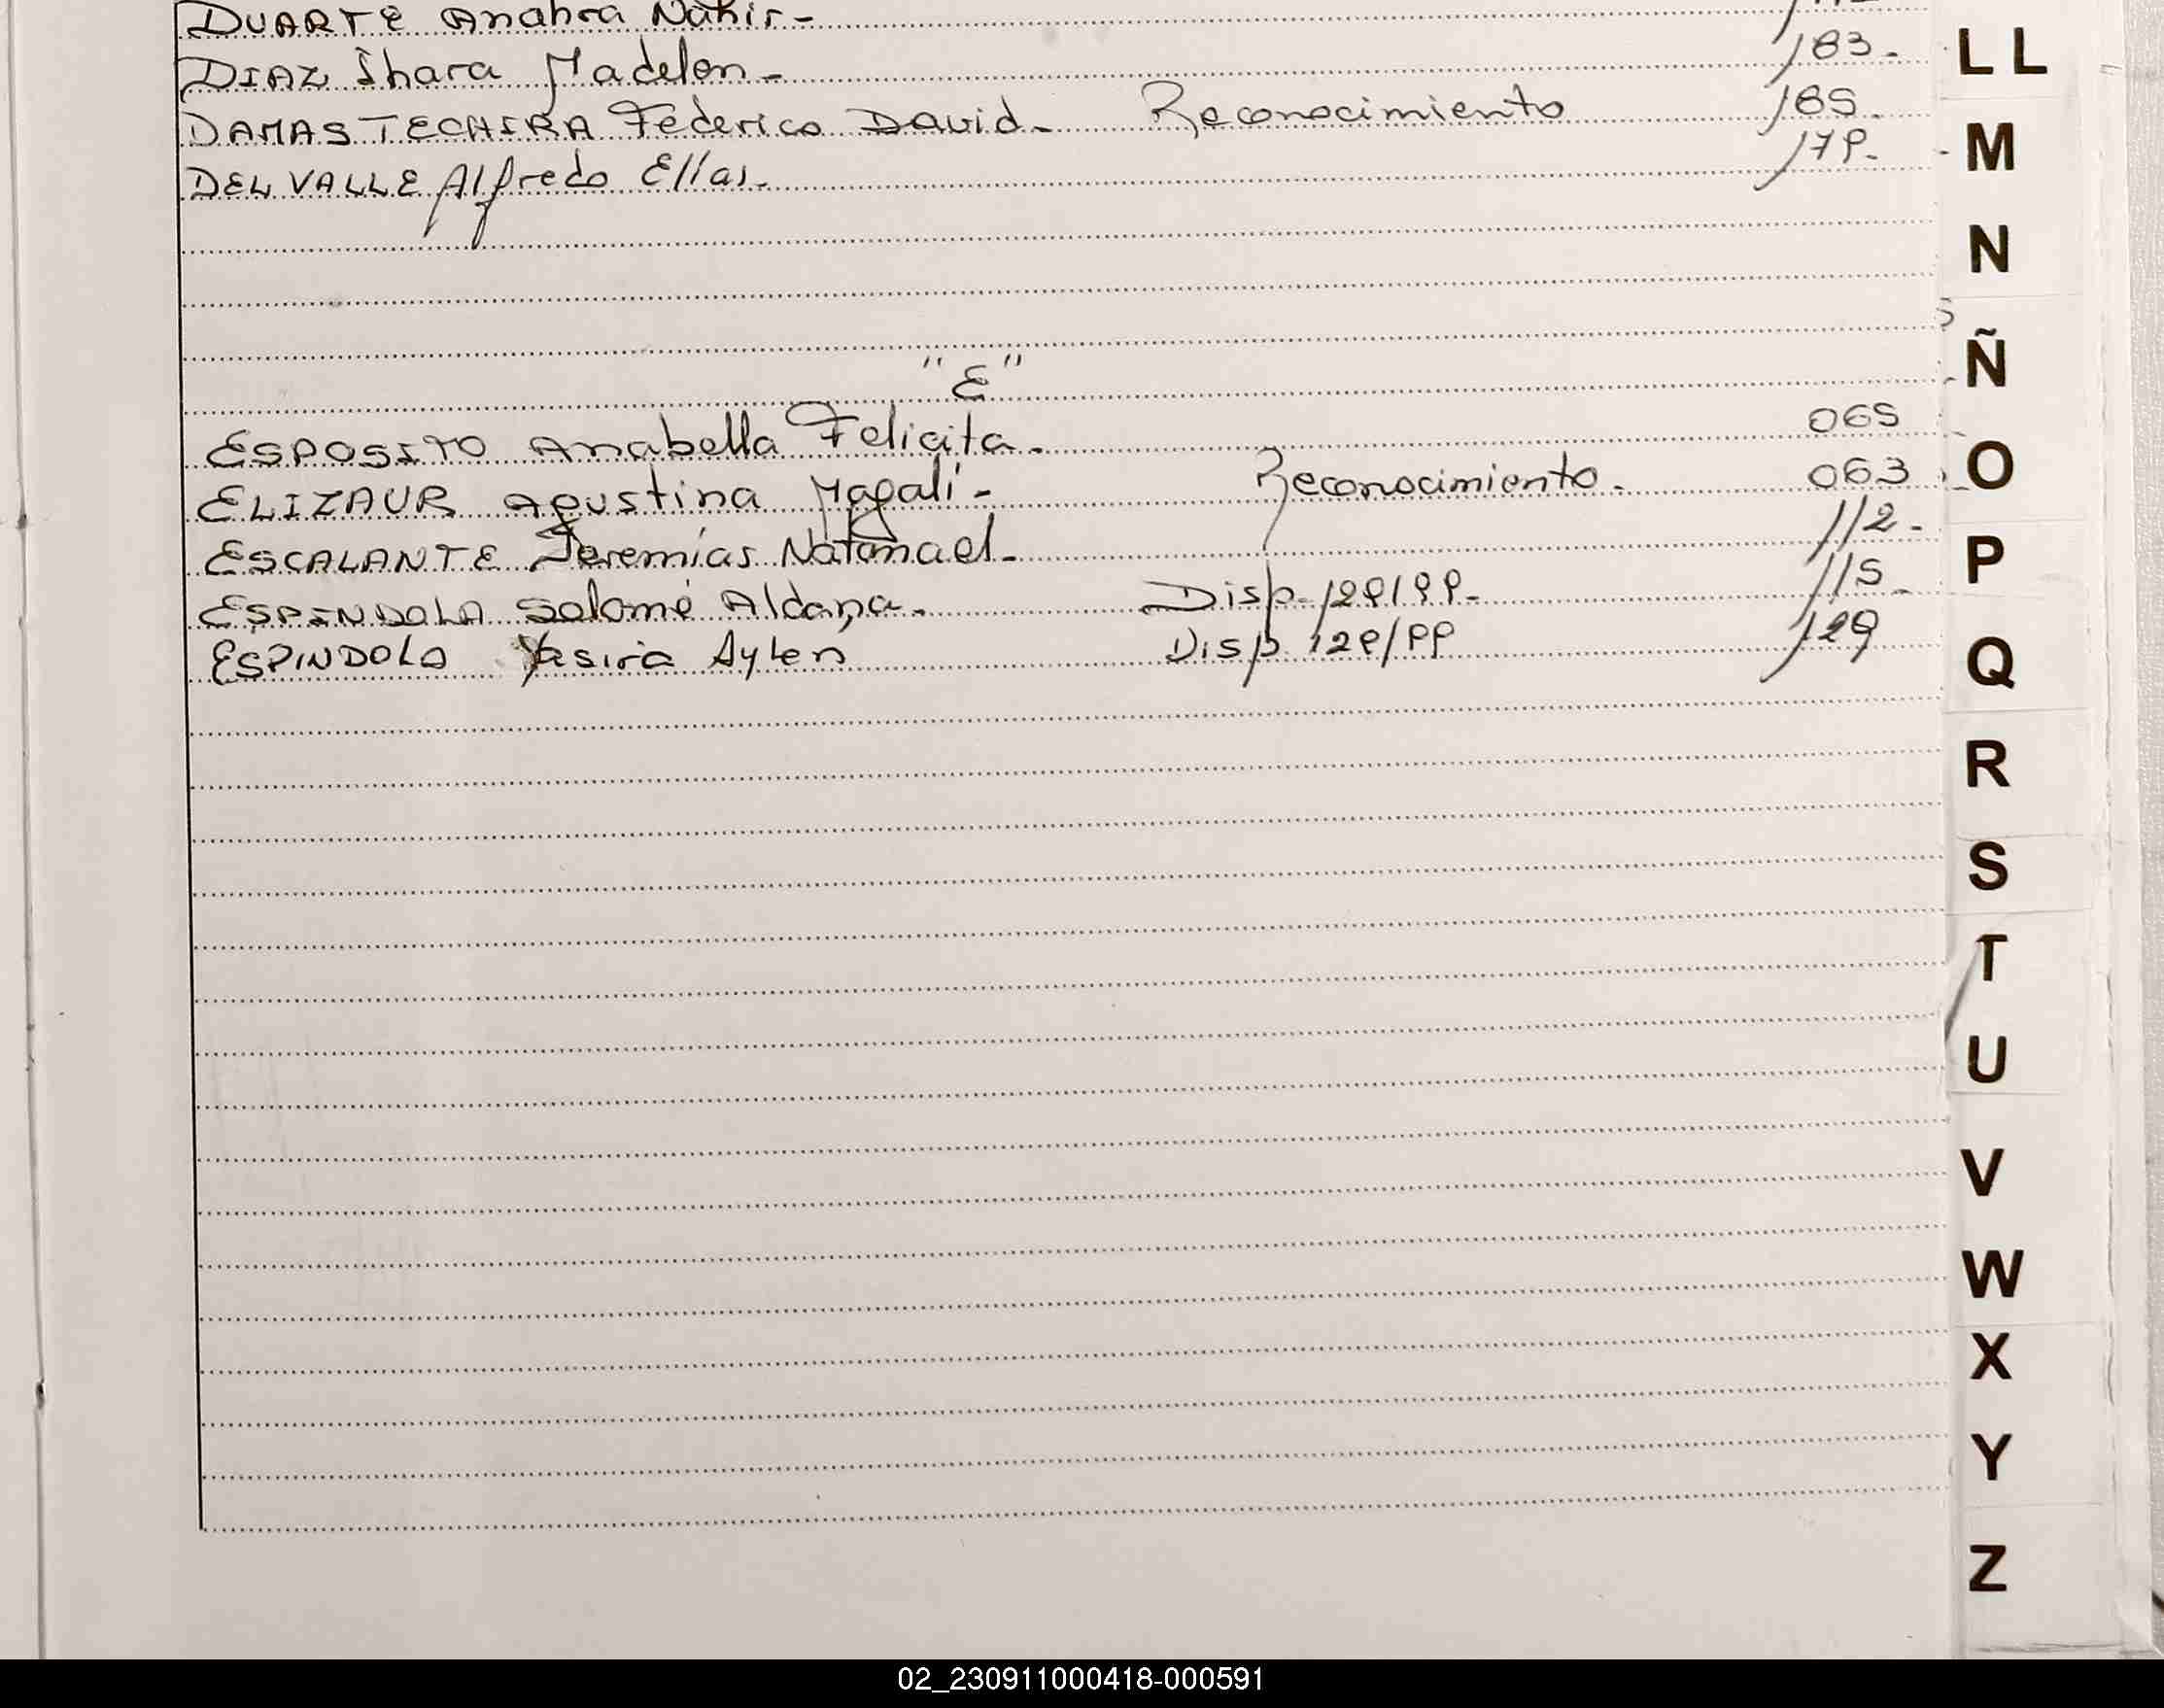 DUARTE Anahra Nahir-
DIAZ Ihara Madelen- 183.
DAMAS TECHIRA Federico David- Reconocimiento 185.
DEL VALLE Alfredo Elias- 179-
"E"
ESPOSITO Anabella Felicita. 065
ELIZAUR Agustina Magalí- Reconocimiento. 063
ESCALANTE Jeremías Natanael- 112-
ESPINDOLA Salomé Aldana. Disp. 129/99- 115-
ESPINDOLA Yasira Aylen Disp 129/99 129
LL
M
N
Ñ
O
P
Q
R
S
T
U
V
W
X
Y
Z
02_230911000418-000591